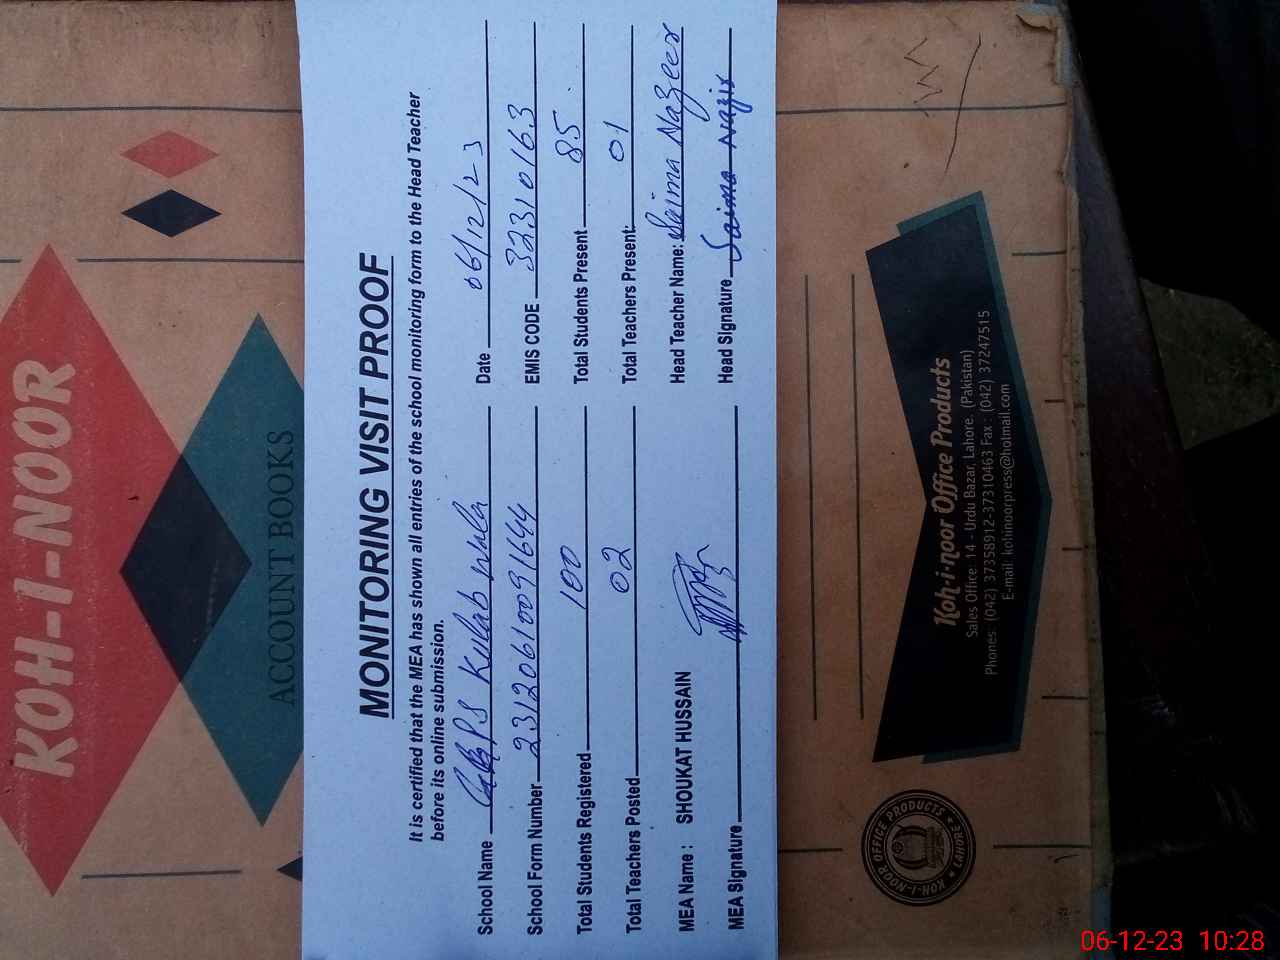 KOH-I-NOOR
ACCOUNT BOOKS
MONITORING VISIT PROOF
It is certified that the MEA has shown all entries of the school monitoring form to the Head Teacher
before its online submission.
School Name Kulab wala Date 06/12/23
School Form Number 23120610091644 EMIS CODE 32310163
Total Students Registered 100 Total Students Present 85
Total Teachers Posted 02 Total Teachers Present: 01
MEA Name : SHOUKAT HUSSAIN Head Teacher Name: Saima Nazeer
MEA Signature Head Signature Saima Nazir
Koh-i-noor Office Products
Sales Office: 14 - Urdu Bazar, Lahore. (Pakistan)
Phones : (042) 37358912-37310463 Fax : (042) 37247515
E-mail: kohinoorpress@hotmail.com
KOH-I-NOOR OFFICE PRODUCTS
LAHORE
06-12-23 10:28